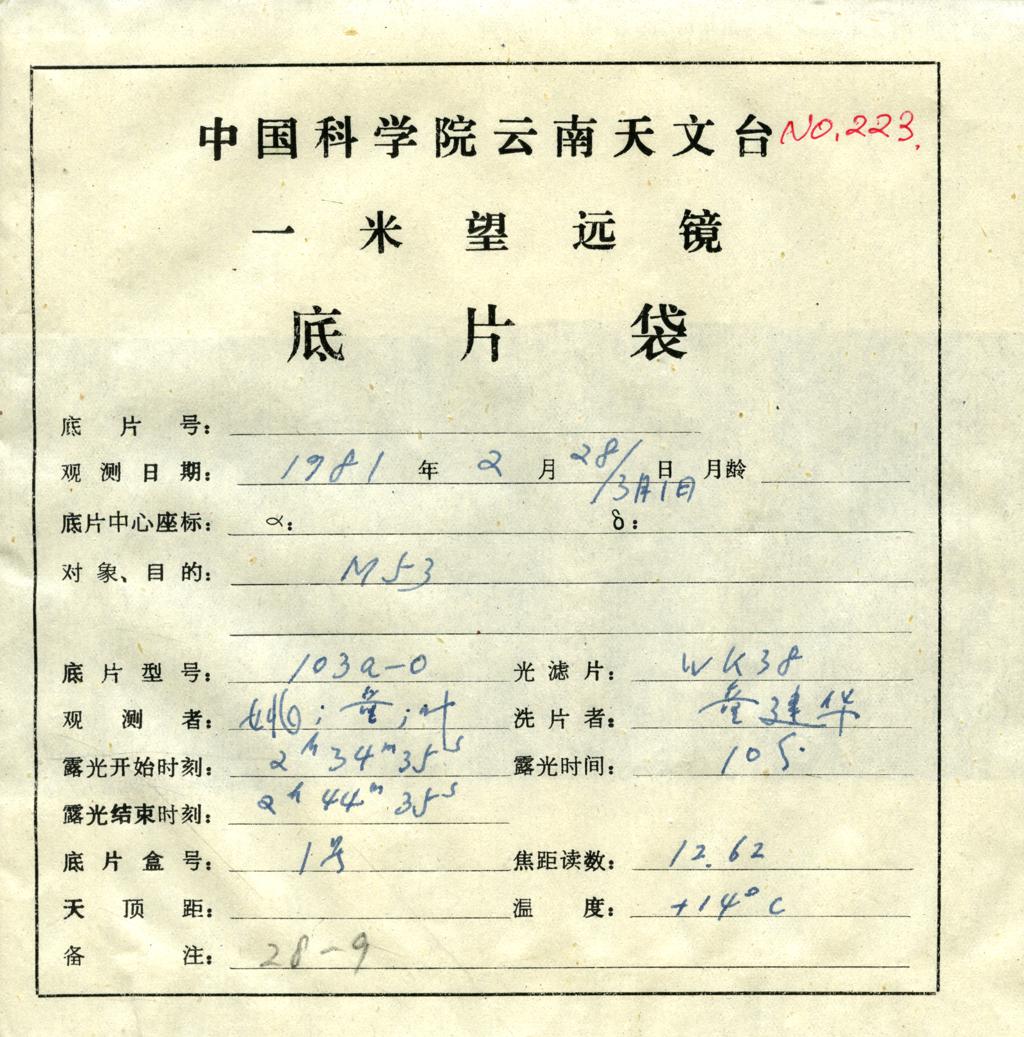 中国科学院云南天文台 NO.223.
一米望远镜
底片袋
底片号：
观测日期： 1981 年 2 月 28/3月1日 日 月龄
底片中心座标： α： δ：
对象、目的： M53
底片型号： 103a-0 光滤片： WK38
观测者： 姚；童；叶 洗片者： 童建华
露光开始时刻： 2h34m35s 露光时间：
露光结束时刻： 2h44m35s
底片盒号： 1号 焦距读数： 12.62
天顶距： 温度： +14°C
备注： 28-9